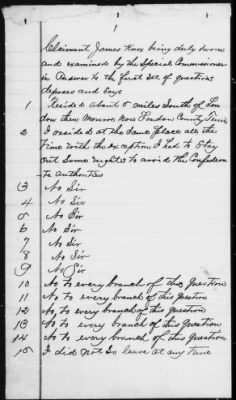 Claimant James Knox being duly sworn
and examined by the Special Commissioner
in Answer to the first set of questions
deposes and says
1 Resided about 5 miles South of Lou
don then Monroe now Loudon County Tenn
2 I resided at the Same place all the
time with the exception I had to Stay
out Some nights to avoid the Confedera
te authorities
3 No Sir
4 No Sir
5 No Sir
6 No Sir
7 No Sir
8 No Sir
9 No Sir
10 No to every branch of this Question
11 No to every branch of this Question
12 No to every branch of this Question
13 No to every branch of this Question
14 No to every branch of this Question
15 I did not So leave at any time